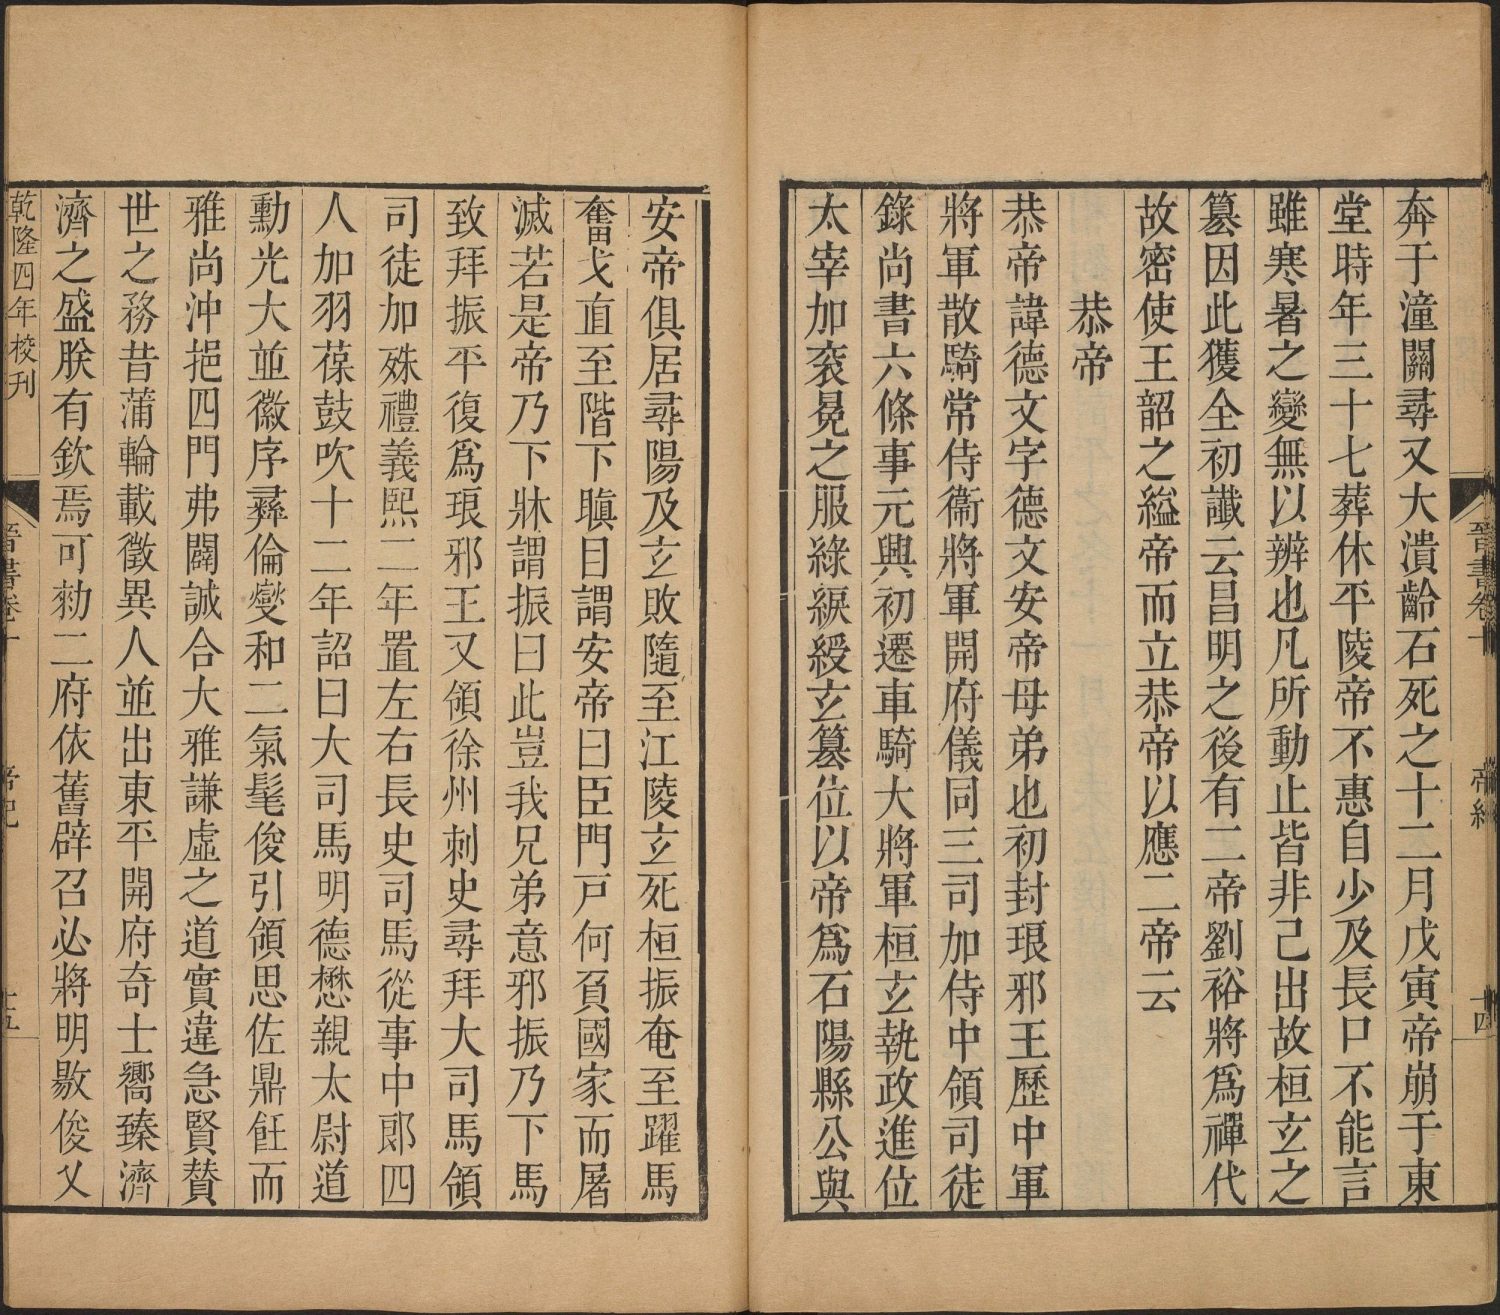 晉書卷十 帝紀 十四
奔于潼關尋又大潰齡石死之十二月戊寅帝崩于東
堂時年三十七葬休平陵帝不惠自少及長口不能言
雖寒暑之變無以辨也凡所動止皆非己出故桓玄之
篡因此獲全初讖云昌明之後有二帝劉裕將爲禪代
故密使王韶之縊帝而立恭帝以應二帝云
恭帝
恭帝諱德文字德文安帝母弟也初封琅邪王歷中軍
將軍散騎常侍衞將軍開府儀同三司加侍中領司徒
錄尚書六條事元興初遷車騎大將軍桓玄執政進位
太宰加袞冕之服綠綟綬玄篡位以帝爲石陽縣公與
安帝俱居尋陽及玄敗隨至江陵玄死桓振奄至躍馬
奮戈直至階下瞋目謂安帝曰臣門戸何負國家而屠
滅若是帝乃下牀謂振曰此豈我兄弟意邪振乃下馬
致拜振平復爲琅邪王又領徐州刺史尋拜大司馬領
司徒加殊禮義熙二年置左右長史司馬從事中郎四
人加羽葆鼓吹十二年詔曰大司馬明德懋親太尉道
勳光大並徽序彞倫燮和二氣髦俊引領思佐鼎飪而
雅尚沖挹四門弗闢誠合大雅謙虛之道實違急賢贊
世之務昔蒲輪載徵異人並出東平開府奇士嚮臻濟
濟之盛朕有欽焉可勑二府依舊辟召必將明敭俊乂
乾隆四年校刊 晉書卷十 帝紀 十五